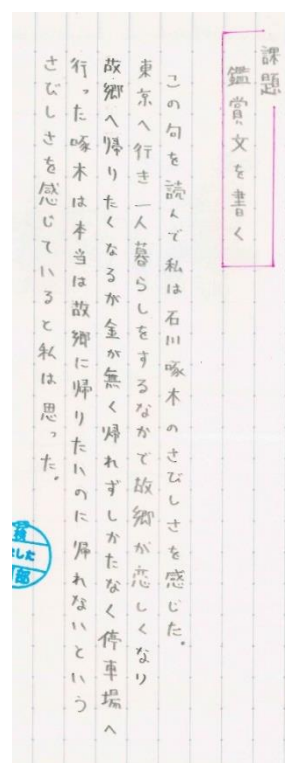 課題
鑑賞文を書く
この句を読んで私は石川啄木のさびしさを感じた。
東京へ行き一人暮らしをするなかで故郷が恋しくなり
故郷へ帰りたくなるが金が無く帰れずしかたなく停車場へ
行った啄木は本当は故郷に帰りたいのに帰れないという
さびしさを感じていると私は思った。
した